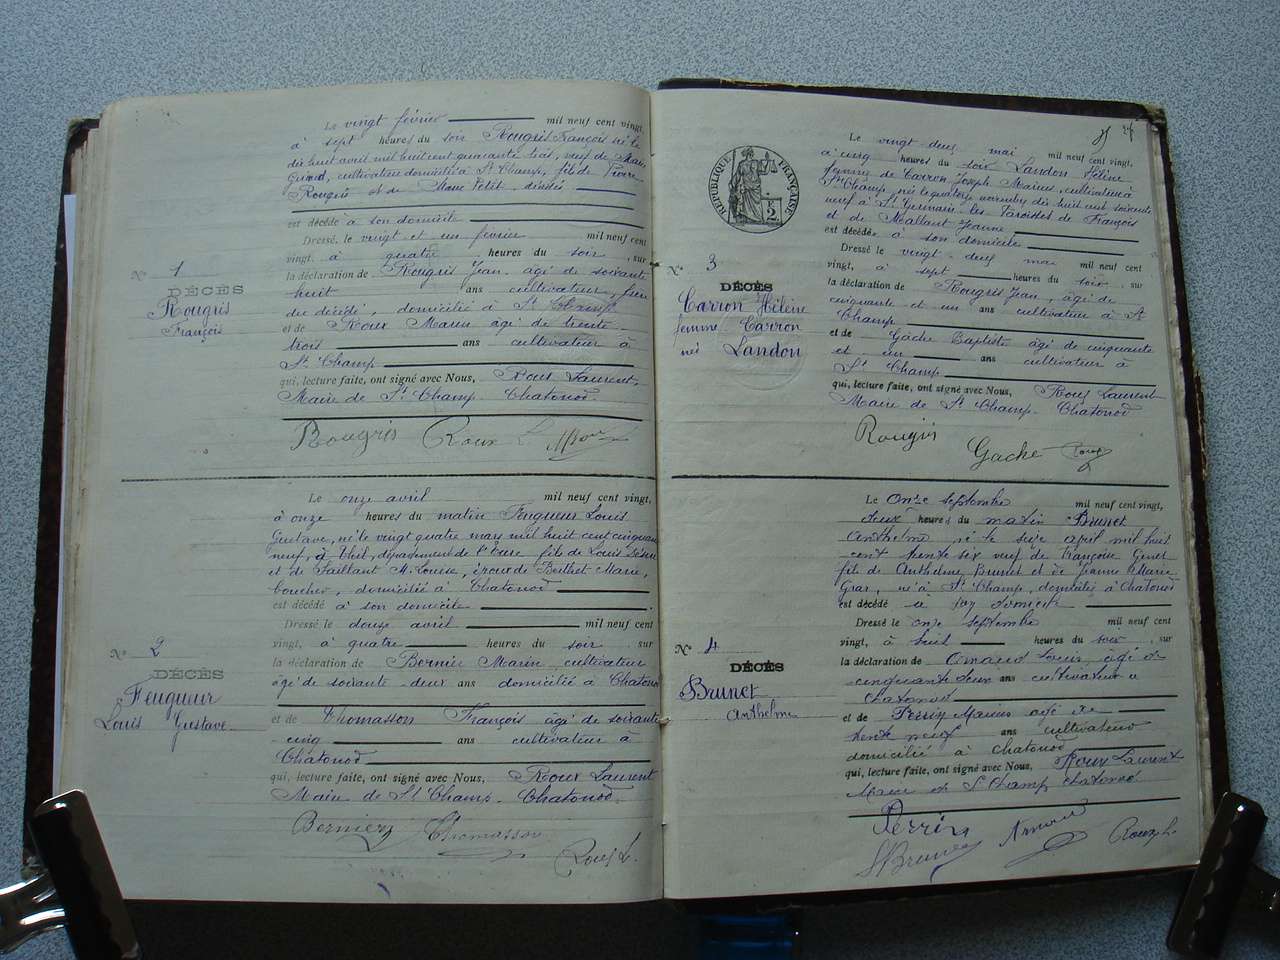 Le vingt février mil neuf cent vingt,
à sept heures du soir Rougris François né le
dix huit avril mil huit cent quarante trois, veuf de Marie
Guiard, cultivateur domicilié à St Champ, fils de Pierre
Rougris et de Marie Petit, décédés
est décédé à son domicile
Dressé, le vingt et un février mil neuf cent
vingt, à quatre heures du soir, sur
la déclaration de Rougris Jean âgé de soixante
huit ans cultivateur frère
du décédé, domicilié à St Champ
et de Roux Marin âgé de trente
trois ans cultivateur à
St Champ
qui, lecture faite, ont signé avec Nous, Roux Laurent
Maire de St Champ Chatonod.
Rougris Roux L
N° 1
DÉCÈS
Rougris
François
Le onze avril mil neuf cent vingt,
à onze heures du matin Feugueur Louis
Gustave, né le vingt quatre mars mil huit cent cinquante
neuf, à Theil, département de l'Eure fils de Louis Désiré
et de Saillant M. Louise, époux de Berthet Marie,
boucher, domicilié à Chatonod
est décédé à son domicile
Dressé le douze avril mil neuf cent
vingt, à quatre heures du soir, sur
la déclaration de Bernier Marin, cultivateur
âgé de soixante deux ans domicilié à Chatonod
et de Thomasson François âgé de soixante
cinq ans cultivateur à
Chatonod
qui, lecture faite, ont signé avec Nous, Roux Laurent
Maire de St Champ-Chatonod.
Bernier Thomasson
Roux L.
N° 2
DÉCÈS
Feugueur
Louis Gustave
RÉPUBLIQUE FRANÇAISE
2
Le vingt deux mai mil neuf cent vingt,
à cinq heures du soir Landon Hélène
femme de Carron Joseph Marius, cultivateur à
St Champ, née le quatorze novembre dix huit cent soixante
neuf à St Germain les Paroisses de François
et de Mallant Jeanne
est décédée à son domicile
Dressé le vingt deux mai mil neuf cent
vingt, à sept heures du soir, sur
la déclaration de Rougris Jean, âgé de
cinquante et un ans cultivateur à St
Champ
et de Gache Baptiste âgé de cinquante
et un ans cultivateur à
St Champ
qui, lecture faite, ont signé avec Nous, Roux Laurent
Maire de St Champ Chatonod
Rougris
Gache Roux
N° 3
DÉCÈS
Carron Hélène
femme Carron
née Landon
Le onze septembre mil neuf cent vingt,
deux heures du matin Brunet
Anthelme, né le seize april mil huit
cent trente six veuf de Françoise Genet
fils de Anthelme Brunet et de Jeanne Marie
Gras, né à St Champ, domicilié à Chatonod
est décédé à son domicile
Dressé le onze septembre mil neuf cent
vingt, à huit heures du soir, sur
la déclaration de Amaud Louis, âgé de
cinquante deux ans cultivateur à
Chatonod
et de Perrin Marius âgé de
trente neuf ans cultivateur
domicilié à Chatonod
qui, lecture faite, ont signé avec Nous, Roux Laurent
Maire de St Champ Chatonod
Perrin
Brunet Roux L.
N° 4
DÉCÈS
Brunet
Anthelme